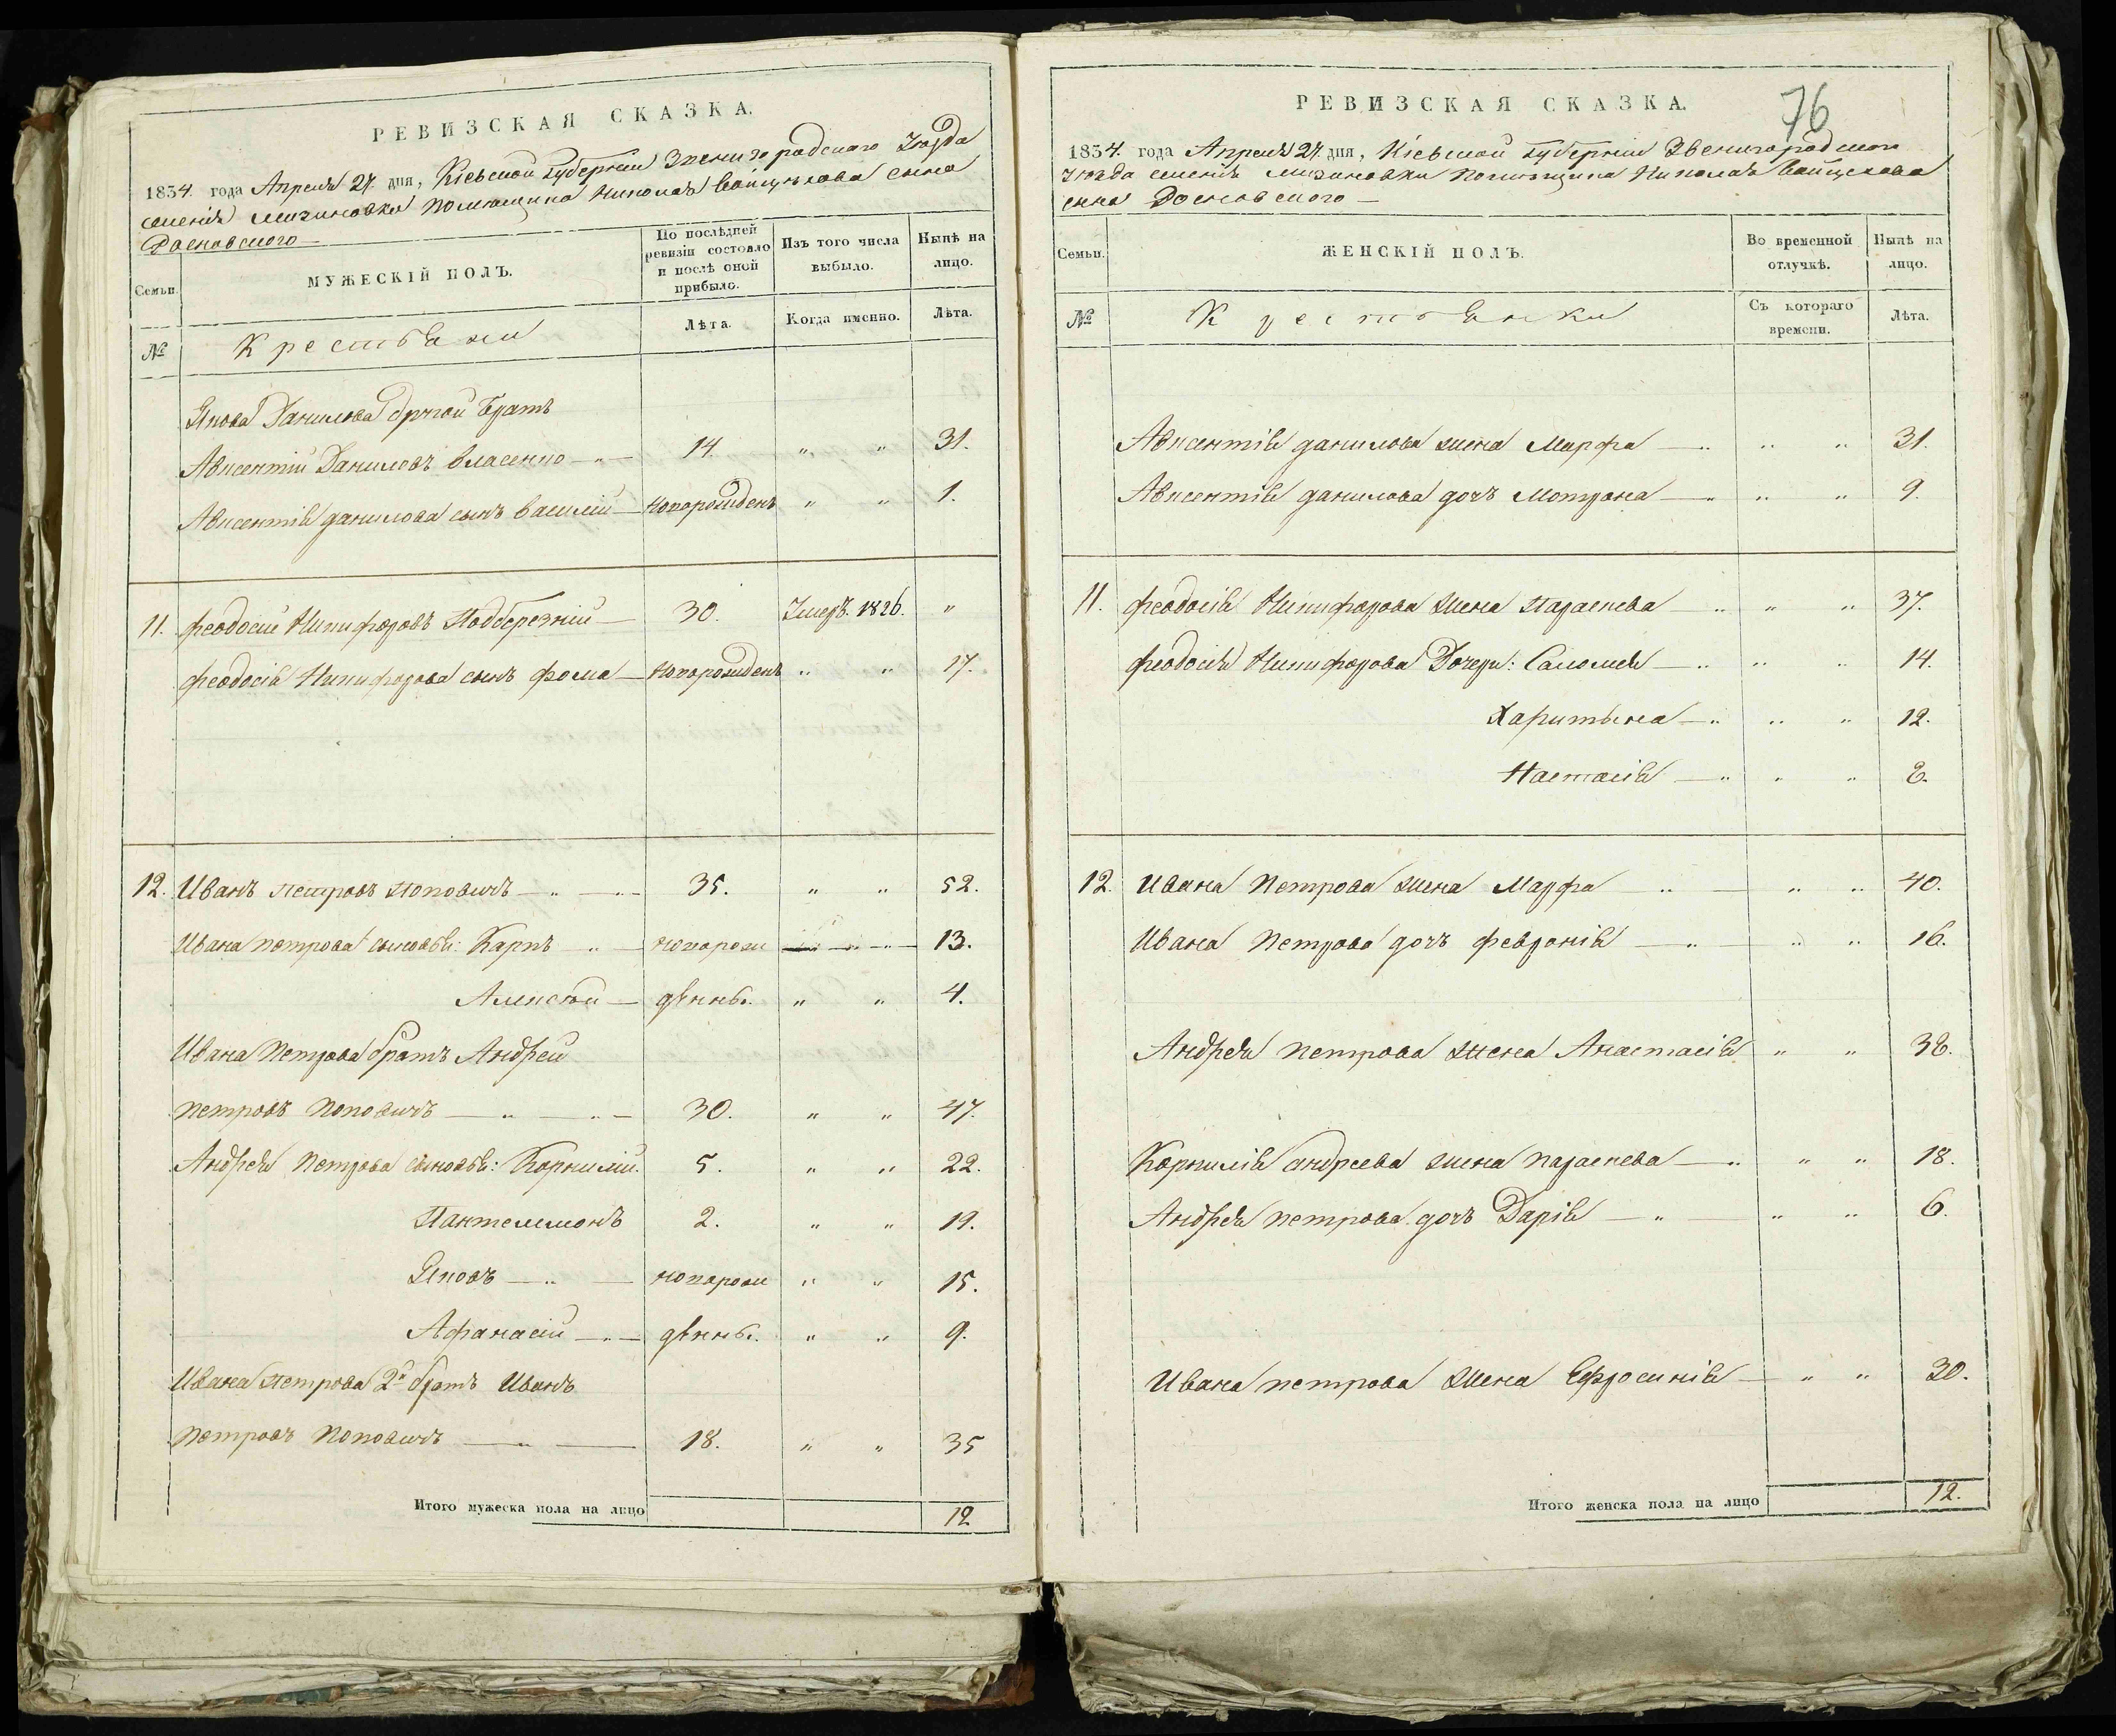 РЕВИЗСКАЯ СКАЗКА.
1834. года Апреля 27. дня, Кіевской губерніи Звенигородского Уезда
селенія Мизиновки помещика Николая Войцехова сына
Росновского
Семьи.
МУЖЕСКІЙ ПОЛЪ.
По послѣдней ревизіи состояло и послѣ оной прибыло.
Изъ того числа выбыло.
Нынѣ на лицо.
№
Крестьяни
Лѣта.
Когда именно.
Лѣта.
Якова Данилова другой братъ
Авксентій Даниловъ власенко 14. " " 31.
Авксентія данилова сынъ василій новорожденъ " " 1.
11. феодосій Никифоровъ Подберезній 30. Умеръ. 1826. "
феодосія Никифорова сынъ фома новорожденъ " " 17.
12. Иванъ петровъ поповичъ 35. " " 52.
Ивана петрова сыновья: Карпъ новорож 13.
Алексѣй денны. " " 4.
Ивана Петрова братъ Андрей
петровъ поповичъ 30. " " 47.
Андрея Петрова сыновья: Корнилій. 5. " " 22.
Пантелимонъ 2. " " 19.
Яковъ новорож " " 15.
Афанасій денны. " " 9.
Ивана петрова 2й братъ Иванъ
Петровъ Поповичъ 18. " " 35
Итого мужеска пола на лицо 12
76
РЕВИЗСКАЯ СКАЗКА.
1834. года Апреля 27. дня, Кіевской губерніи Звенигородского
уезда селенія Мизиновки помещика Николая Войцехова
сына Росновского
Семьи.
ЖЕНСКІЙ ПОЛЪ.
Во временной отлучкѣ.
Нынѣ на лицо.
№
Крестьянки
Съ котораго времени.
Лѣта.
Авксентія данилова жена Марфа " " 31.
Авксентія данилова дочь Мотрона " " 9.
11. феодосія Никифорова жена Параскева " " 37.
феодосія Никифорова Дочери: Саломея " " 14.
Харитына " " 12.
Настасія " " 8.
12. Ивана Петрова жена Марфа " " 40.
Ивана Петрова дочь февронія " " 16.
Андрея петрова жена Анастасія " " 38.
Корнилія андреева жена параскева " " 18.
Андрея петрова дочь Дарія " " 6.
Ивана петрова жена Ефросинія " " 30.
Итого женска пола на лицо 12.